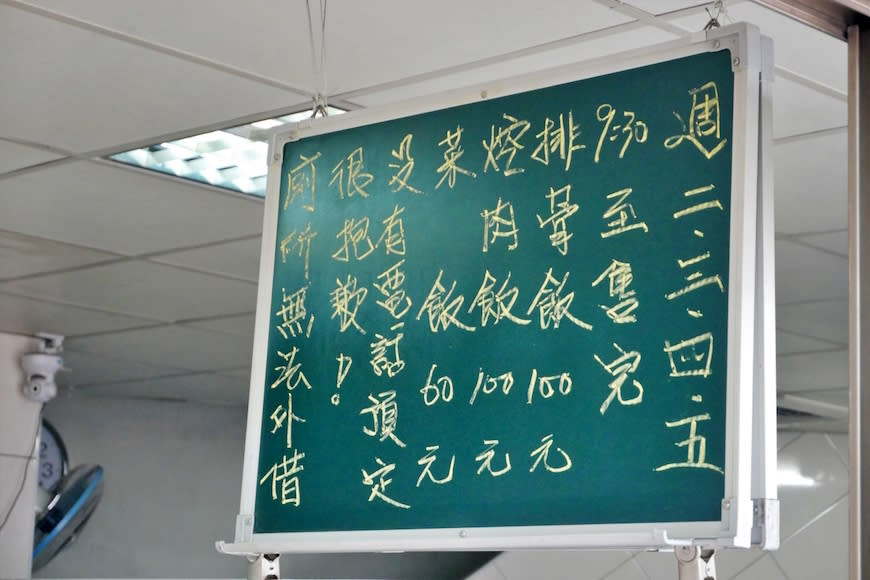 週二、三、四、五
9:30至售完
排骨飯100元
焢肉飯100元
菜飯60元
没有電話預定
很抱歉!
廁所無法外借